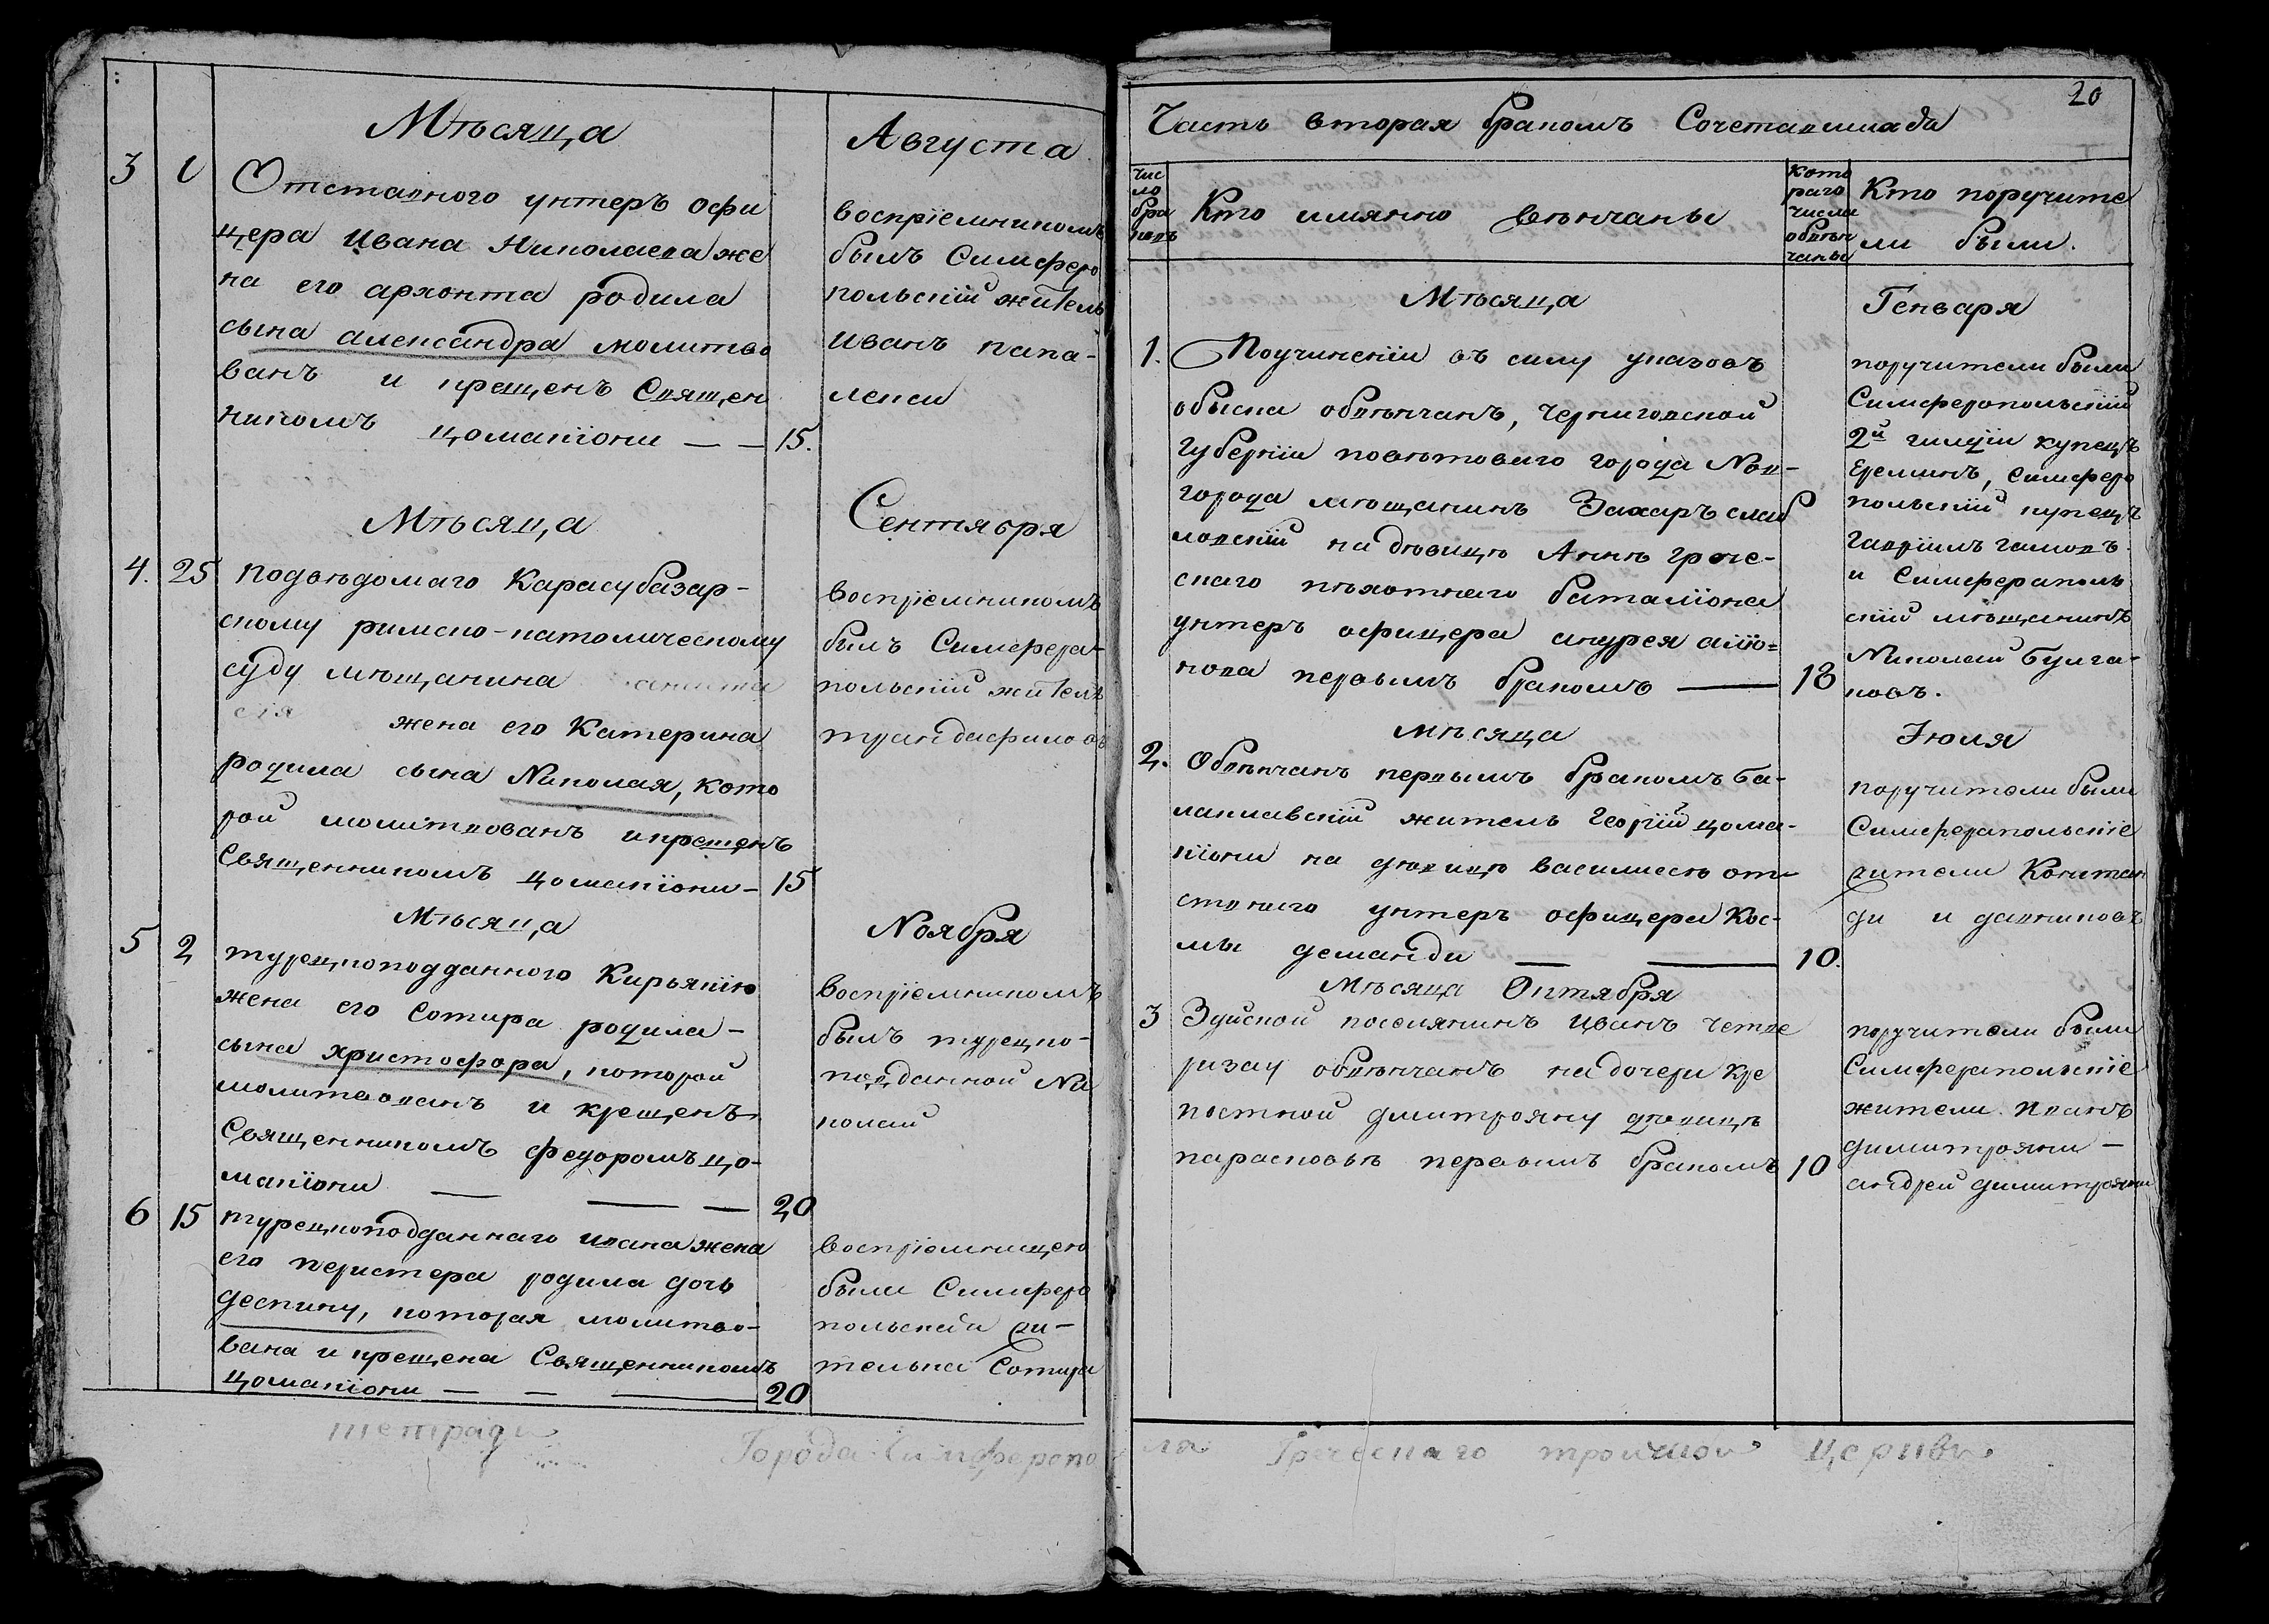 Мѣсяца Августа
3 1 Отставного унтеръ офи
цера Ивана Николаева же
на его архонта родила
сына александра молитво
ванъ и крещенъ Священ
никомъ цомакіони — — 15.
воспріемникомъ
былъ Симферо
польскій житель
Иванъ папа-
лекси
Мѣсяца Сентября
4. 25 подвѣдомаго Карасубазар-
скому римско-католическому
суду мѣщанина
жена его Катерина
родила сына Николая, кото
рой молитвованъ и крещенъ
Священникомъ цомакіони - 15
воспріемникомъ
былъ Симферо-
польскій житель
трандафиловъ
Мѣсяца Ноября
5 2 турецкоподданного Кирьякію
жена его Сотира родила -
сына христофора, которой
молитвованъ и крещенъ
Священникомъ федоромъ цо-
макіони — — — 20
воспріемникомъ
былъ турецко-
подданной Ни
колай
6 15 турецкоподданнаго ивана жена
его перистера родила дочь
деспину, которая молитво-
вана и крещена Священникомъ
цомакіони — — — 20
воспріемницею
были Симферо
польская жи-
телька Сотира
тетради Города Симферопо
20
Часть вторая бракомъ Сочетавшихся
Чис
ло
бра
ковъ
Кто имянно вѣнчаны
Кото
раго
числа
обвѣн
чаны
Кто поручите
ли были.
Мѣсяца Генваря
1. Поучиненіи въ силу указовъ
обыска обвѣнчанъ, Черниговской
губерніи повѣтоваго города Нов-
города мѣщанинъ Захаръ
на дѣвицѣ Аннѣ грече-
скаго пѣхотнаго баталіона
унтеръ офицера андрея
первымъ бракомъ — 18
поручители были
Симферопольскій
2й гилдіи купецъ
Ереминъ, Симферо
польскій купецъ
гавріилъ гамовъ
и Симферополь
скій мѣщанинъ
Николай Булга-
ковъ.
мѣсяца Іюля
2. Обвѣнчанъ первымъ бракомъ Ба-
лаклавскій житель Георгій цома-
кіони на дѣвицѣ василисѣ отъ-
ставнаго унтеръ офицера Кос-
мы деманди — — 10.
поручители были
Симферопольскіе
жителиКонитан
ди и давниковъ
Мѣсяца Октября
3 Зуйской поселянинъ Иванъ четве
ризау обвѣнчанъ на дочери кре
постной дмитрояну дѣвицѣ
парасковьѣ первымъ бракомъ 10
поручители были
Симферопольскіе
жители Иванъ
димитрояни -
андрей димитрояни
ля Греческаго троицкой церкви